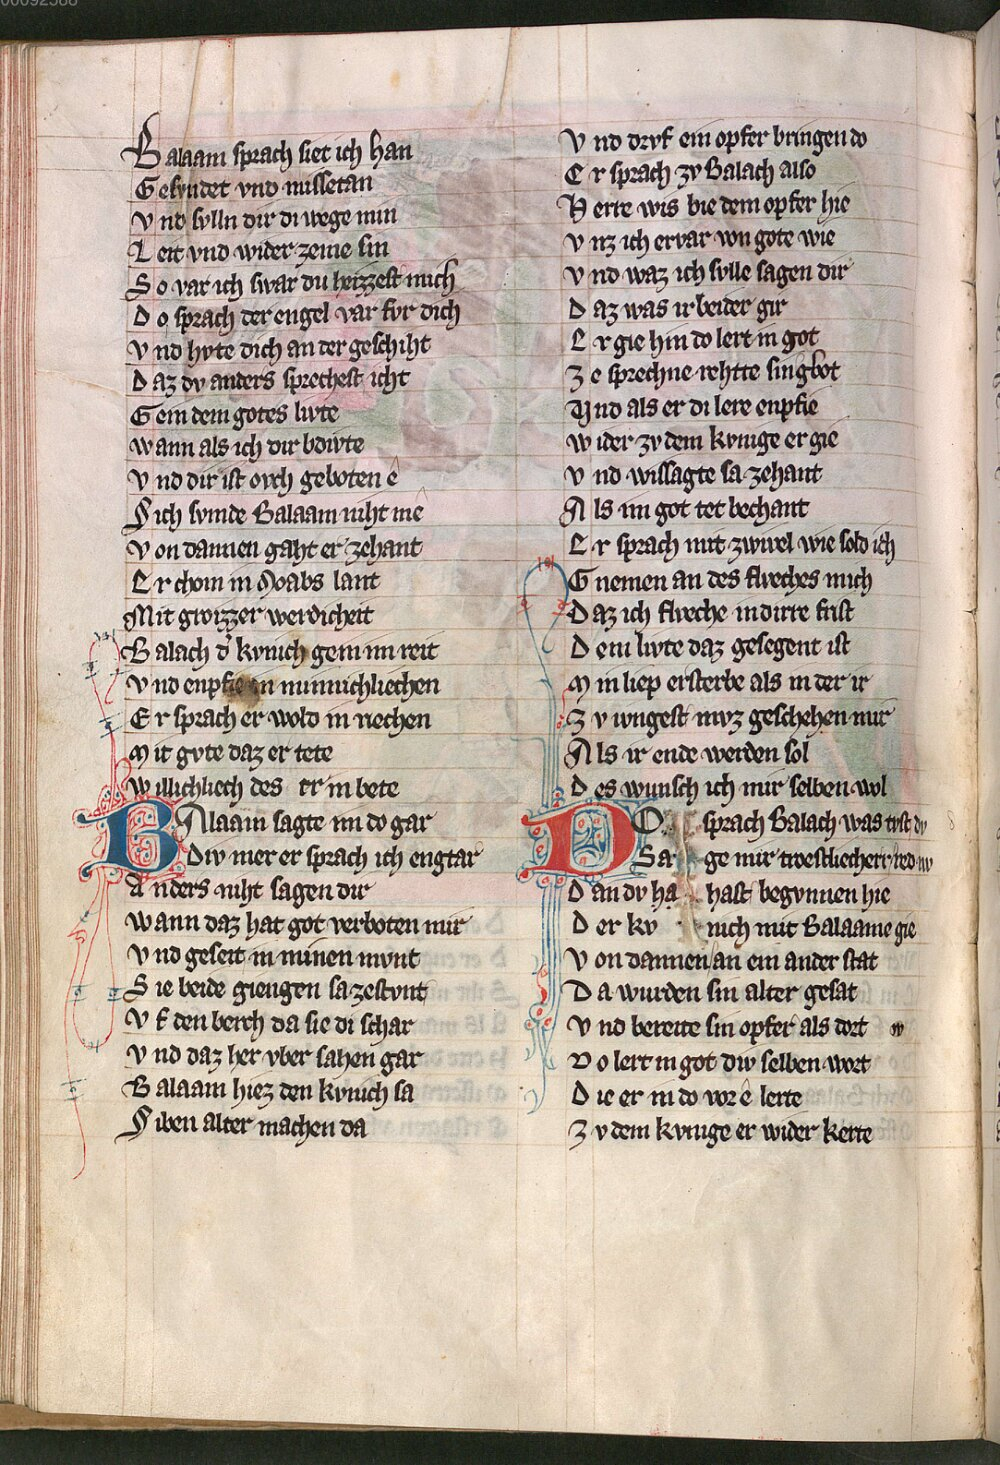 Balaam sprach siet ich han
Gesvndet vnd missetan
Vnd svlln dir di wege min
Leit vnd wider zeme sin
So var ich swar du heizzest mich
Do sprach der engel var fvr dich
Vnd hvte dich an der geschiht
Daz dv anders sprechest icht
Gein dem gotes livte
Wann als ich dir bdivte
Vnd dir ist ovch geboten ê
Sich svmde Balaam niht mê
Von dannen gaht er zehant
Er chom in Moabs lant
Mit grozzer werdicheit
Balach d' kvnich gein im reit
Vnd enpfie in minnichliechen
Er sprach er wold in riechen
Mit gvte daz er tete
Willichliech des er in bete
BAlaam sagte im do gar
Div mer er sprach ich engtar
Anders niht sagen dir
Wann daz hat got verboten mir
Vnd geseit in minen mvnt
Sie beide giengen sa zestvnt
Vf den berch da sie di schar
Vnd daz her vber sahen gar
Balaam hiez den kvnich sa
Siben alter machen da
Vnd drvf ein opfer bringen do
Er sprach zv Balach also
Herre wis bie dem opfer hie
Vnz ich ervar von gote wie
Vnd waz ich svlle sagen dir
Daz was ir beider gir
Er gie hin do lert in got
Ze sprechne rehtte sin gbot
Vnd als er di lere enpfie
Wider zv dem kvnige er gie
Vnd wissagte sa zehant
Als im got tet bechant
Er sprach mit zwivel wie sold ich
Gnemen an des flveches mich
Daz ich flveche in dirre frist
Dem livte daz gesegent ist
Min liep ersterbe als in der ir
Zv ivngest mvz geschehen mir
Als ir ende werden sol
Des wunsch ich mir selben wol
DO sprach Balach was tvst dv
Sage mir troestliecherr red nv
Dan dv ha hast begvnnen hie
Der kvnich mit Balaame gie
Von dannen an ein ander stat
Da wurden sin alter gesat
Vnd bereite sin opfer als dort
Do lert in got div selben wort
Die er in do vor ê lerte
Zv dem kvnige er wider kerte